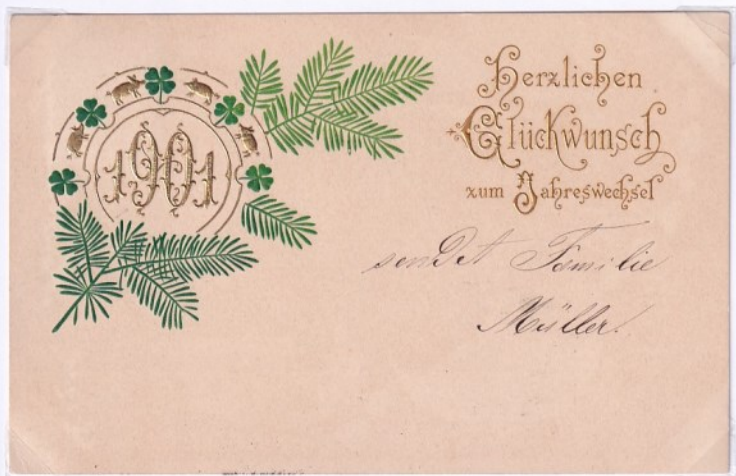 1901
Herzlichen
Glückwunsch
zum Jahreswechsel
sendet Familie
Müller.